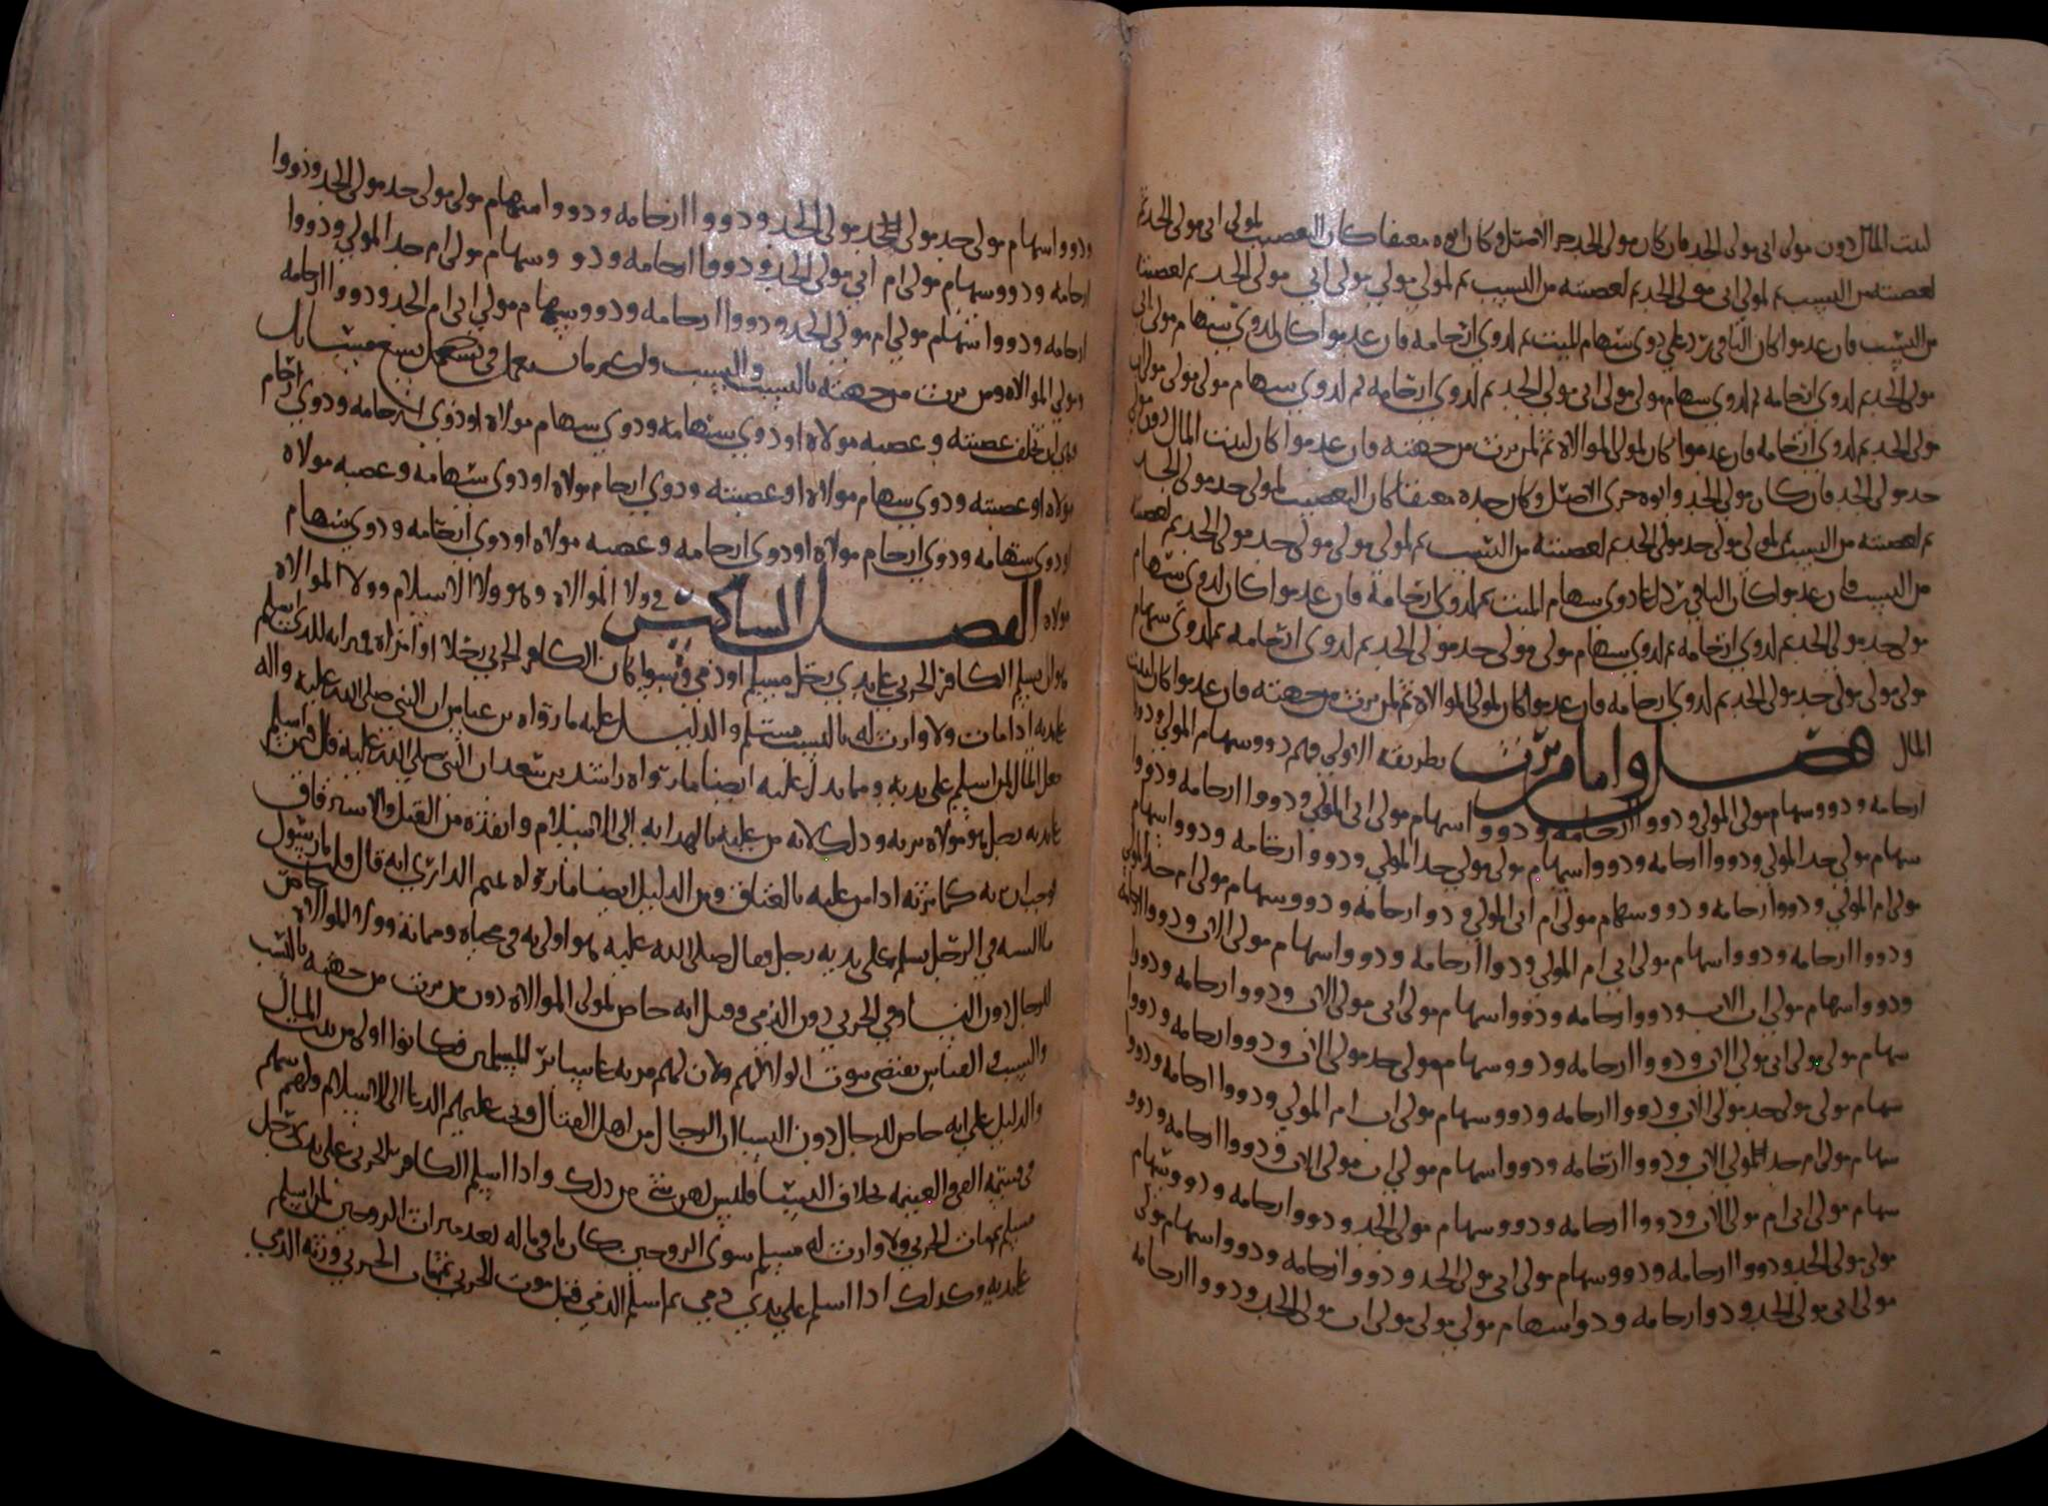 لبيت المال دون مولى ابي مولى الجد فان كان مولى الجد حر الاصل وكان ابوه معتقا كان التعصيب لمولى ابي مولى الجد ثم
لعصبته من النسب ثم لمولى ابي مولى الجد ثم لعصبته من النسب ثم لمولى مولى مولى ابي مولى الجد ثم لعصبته
من النسب فان عدموا كان الباقي رد على ذوي سهام الميت ثم لذوي ارحامه فان عدموا كان لذوي سهام مولى ابي
مولى الجد ثم لذوي ارحامه ثم لذوي سهام مولى مولى ابي مولى الجد ثم لذوي ارحامه ثم لذوي سهام مولى مولى مولى ابي
مولى الجد ثم لذوي ارحامه فان عدموا كان لمولى الموالاه ثم لمن يرث من جهته فان عدموا كان لبيت المال دون مولى
جد مولى الجد فان كان مولى الجد وابوه حري الاصل وكان جده معتقا كان التعصيب لمولى جد مولى الجد
ثم لعصبته من النسب ثم لمولى مولى جد مولى الجد ثم لعصبته من النسب ثم لمولى مولى مولى جد مولى الجد ثم لعصبته
من النسب فان عدموا كان الباقي رد على ذوي سهام الميت ثم لذوي ارحامه فان عدموا كان لذوي سهام
مولى جد مولى الجد ثم لذوي ارحامه ثم لذوي سهام مولى مولى جد مولى الجد ثم لذوي ارحامه ثم لذوي سهام
مولى مولى مولى جد مولى الجد ثم لذوي ارحامه فان عدموا كان لمولى الموالاه ثم لمن يرث من جهته فان عدموا كان لبيت
المال فصل واما من يرث بطريقه الاولي فهم ذوو سهام المولى وذووا
ارحامه وذوو سهام مولى المولى وذووا ارحامه وذووا سهام مولى ابي المولى وذووا ارحامه وذووا
سهام مولى جد المولى وذووا ارحامه وذووا سهام مولى مولى جد المولى وذووا ارحامه وذووا سهام
مولى ام المولى وذووا ارحامه وذوو سهام مولى ام ابي المولى وذوو ارحامه وذوو سهام مولى ام جد المولى
وذووا ارحامه وذووا سهام مولى ابي ام المولى وذووا ارحامه وذووا سهام مولى الاب وذووا ارحامه
وذووا سهام مولى اب الاب وذووا ارحامه وذووا سهام مولى ابي مولى الاب وذووا ارحامه وذووا
سهام مولى مولى ابي مولى الاب وذووا ارحامه وذوو سهام مولى جد مولى الاب وذووا ارحامه وذووا
سهام مولى مولى جد مولى الاب وذووا ارحامه وذوو سهام مولى اب ام المولى وذووا ارحامه وذووا
سهام مولى ام جد مولى الاب وذووا ارحامه وذووا سهام مولى اب مولى الاب وذووا ارحامه وذوو
سهام مولى ابي ام مولى الاب وذووا ارحامه وذوو سهام مولى الجد وذووا ارحامه وذوو سهام
مولى مولى الجد وذووا ارحامه وذوو سهام مولى ابي مولى الجد وذووا ارحامه وذووا سهام مولى
مولى ابي مولى الجد وذوا ارحامه وذوا سهام مولى مولى مولى اب مولى الجد وذووا ارحامه
وذووا سهام مولى جد مولى الجد مولى الجد وذووا ارحامه وذووا سهام مولى مولى جد مولى الجد وذووا
ارحامه وذوو سهام مولى ام ابي مولى الجد وذووا ارحامه وذوو سهام مولى ام جد المولى وذووا
ارحامه وذووا سهام مولى ام مولى الجد وذووا ارحامه وذوو سهام مولى ابي ام الجد وذووا ارحامه
ومولى الموالاه ومن يرث من جهته بالنسب والسبب
عصبته وعصبه مولاه او ذوي سهامه وذوي سهام مولاه او ذوي ارحامه وذوي ارحام
مولاه او عصبته وذوي سهام مولاه او عصبته وذوي ارحام مولاه او ذوي سهامه وعصبه مولاه
او ذوي سهامه وذوي ارحام مولاه او ذوي ارحامه وعصبه مولاه او ذوي ارحامه وذوي سهام
مولاه الفصل السادس في ولا الموالاه وهو ولا الاسلام وولا الموالاه
هو ان يسلم الكافر الحربي على يدي رجل مسلم او ذمي وسوا كان الكافر الحربي رجلا او امراه فميراثه للذي اسلم
على يديه اذا مات ولا وارث له بالنسب مسلم والدليل عليه ما رواه بن عباس ان النبي صلى الله عليه واله
جعل المال لمن اسلم على يديه ومما يدل عليه ايضا ما رواه راشد بن سعد ان النبي صلى الله عليه قال من اسلم
على يديه رجل فهو مولاه يرثه وذلك لانه من عليه بالهدايه الى الاسلام وانقذه من القتل والاسترقاق
فوجب ان يرثه كما يرثه اذا من عليه بالعتاق ومن الدليل ايضا ما رواه تميم الداري انه قال قلت يا رسول
ما السنه في الرجل يسلم على يديه رجل فقال صلى الله عليه هو اولى به في محياه ومماته وولا الموالاه خاص
للرجال دون النسا وفي الحربي دون الذمي وقيل انه خاص لمولى الموالاه دون من يرث من جهته بالنسب
والسبب والقياس يقتضي ثبوت الولا لهم ولان لهم مزيه على سائر المسلمين فكانوا اولى من بيت المال
والدليل على انه خاص للرجال دون النسا ان الرجال من اهل القتال وتجب عليهم الدعا الى الاسلام ولهم سهم
في قسمه الفي والغنيمه بخلاف النسا فليس لهن شي من ذلك واذا اسلم الكافر الحربي على يدي رجل
مسلم فمات الحربي ولا وارث له مسلم سوى الزوجين كان باقي ماله بعد ميراث الزوجين لمن اسلم
على يديه وكذلك اذا اسلم على يدي ذمي ثم اسلم الذمي قبل موت الحربي ثم مات الحربي ورثه الذمي